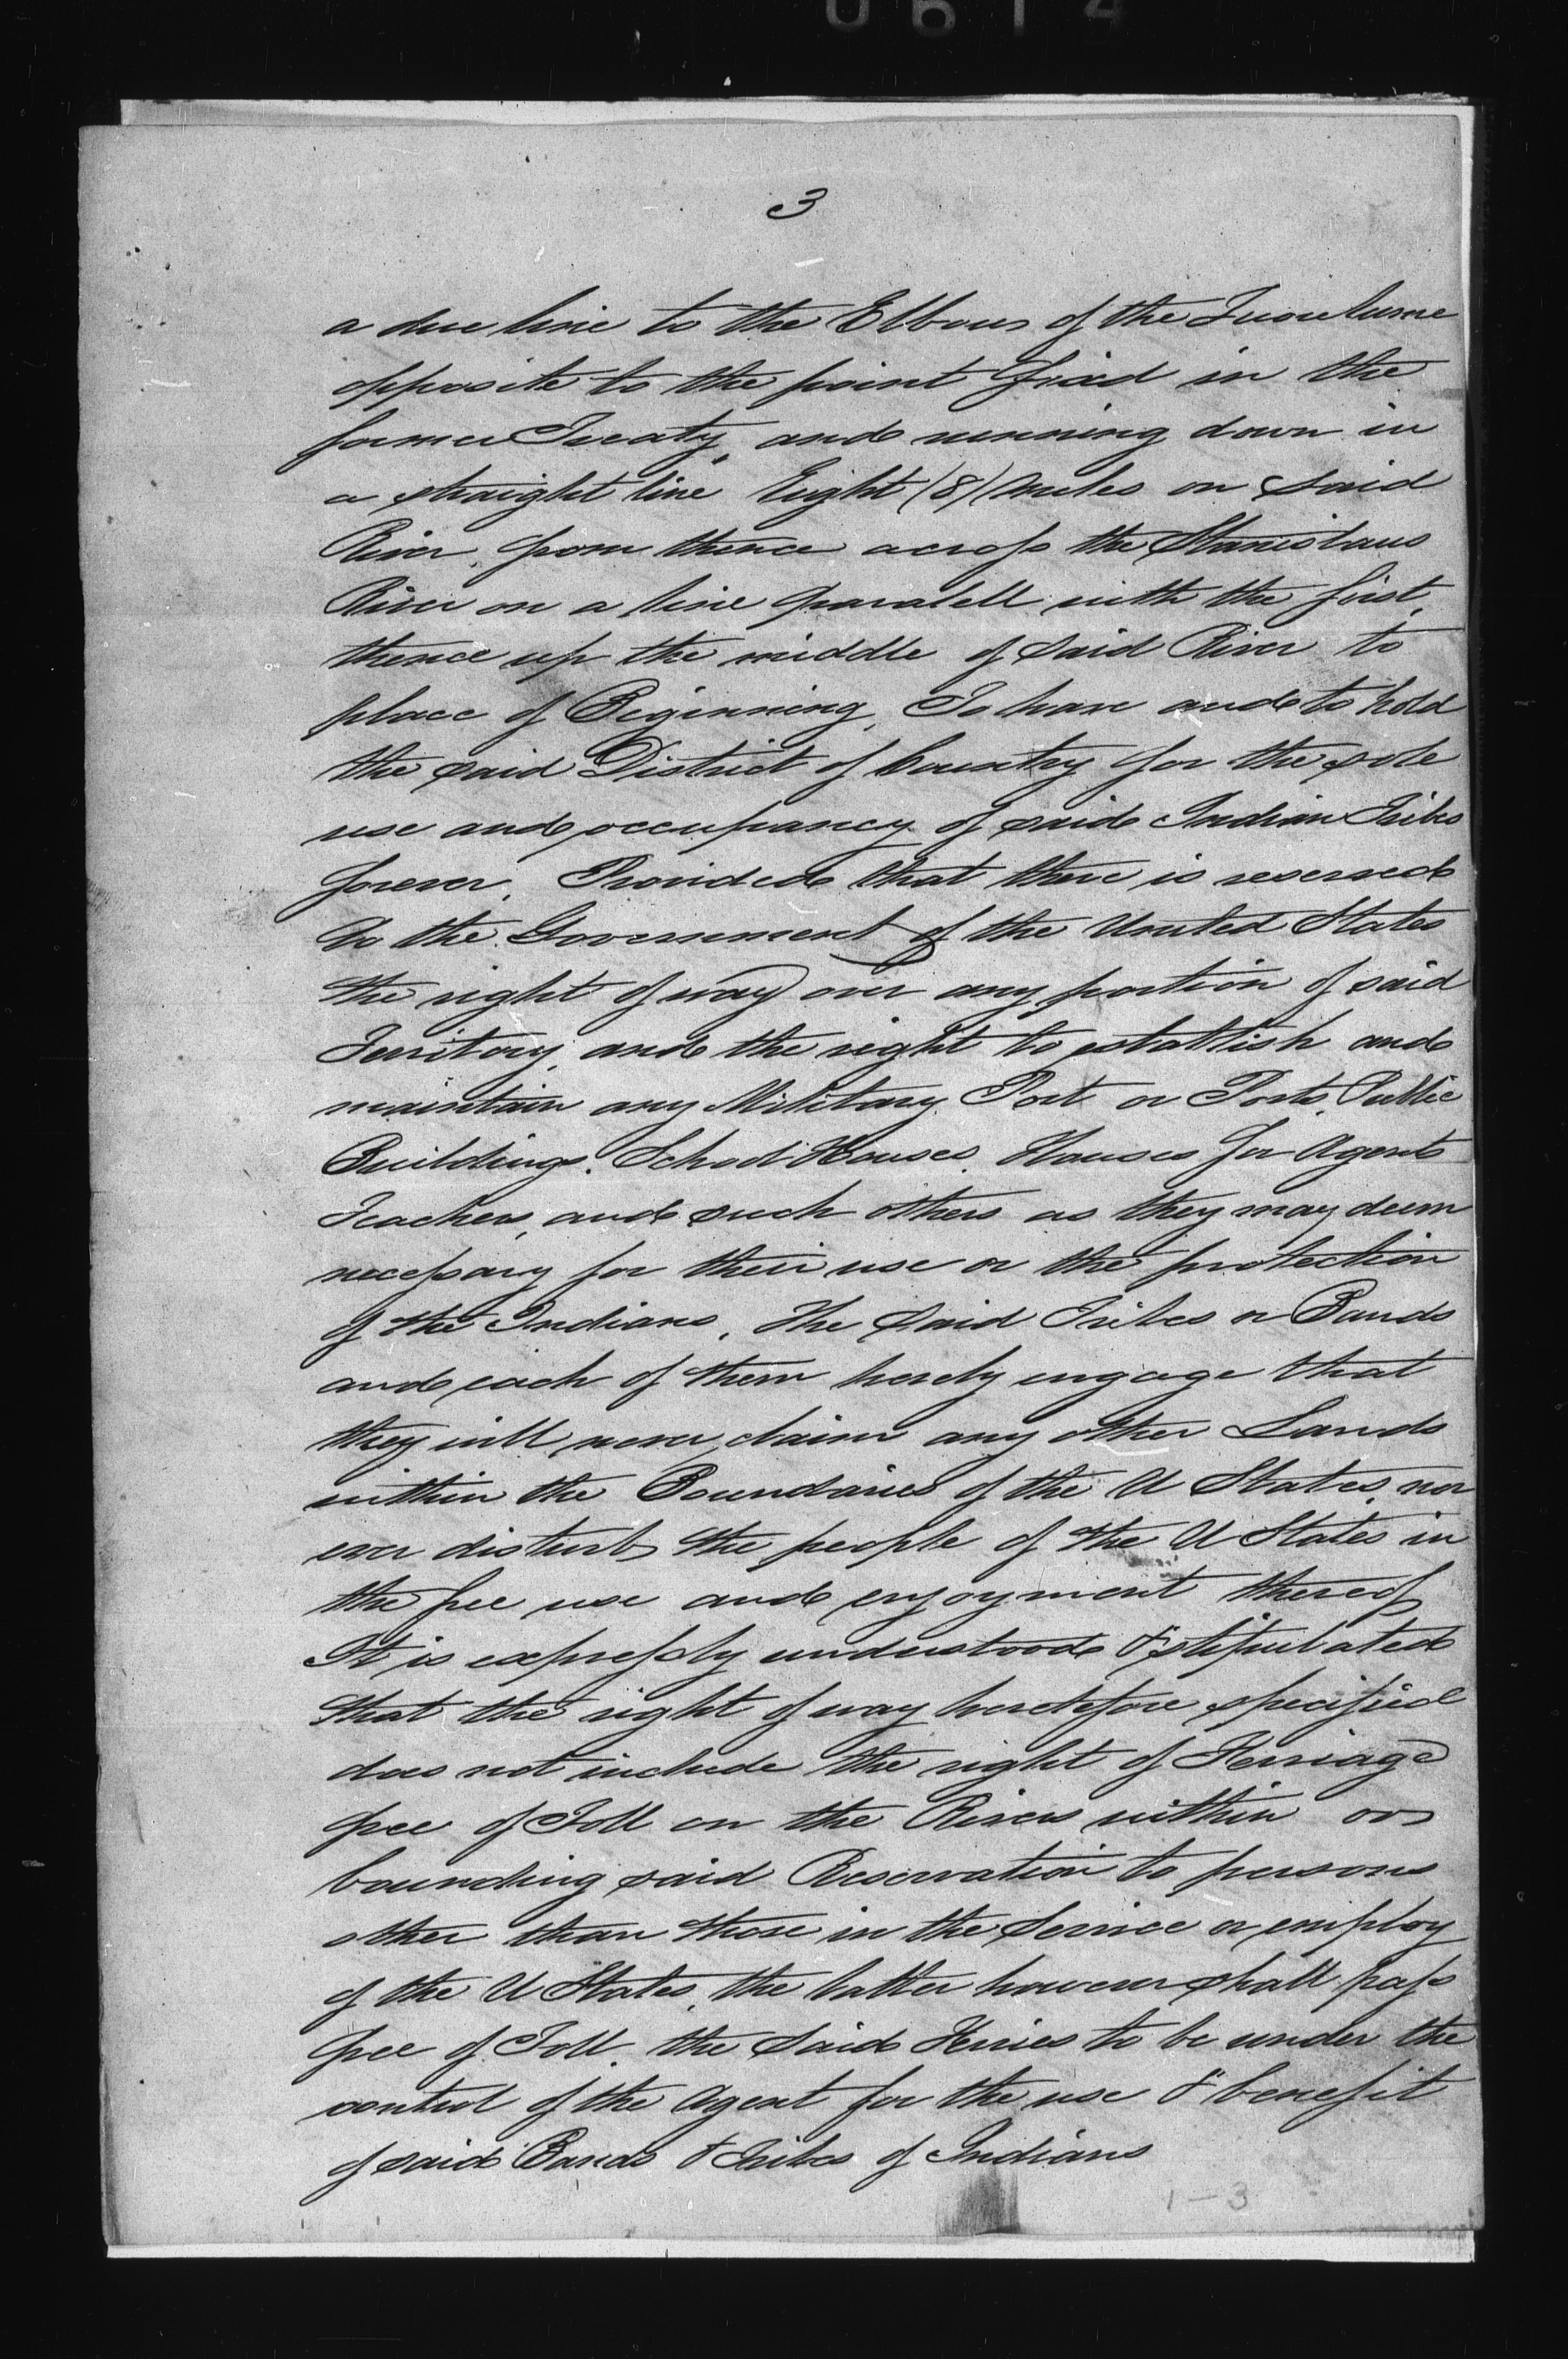 0614
3
a due line to the Elbow of the Tuoulumne
opposite to the point fixed in the
former Treaty, and running down in
a straight line Eight (8) miles on said
River, from thence across the Stanislaus
River on a line paralell with the first,
thence up the middle of said River to
place of Beginning, To have and to hold
the said District of Country for the sole
use and occupancy of said Indian Tribes
forever, Provided that there is reserved
to the Government of the United States
the right of way over any portion of said
Territory, and the right to establish and
maintain any Military Post or Posts, Public
Buildings, School Houses, Houses for Agents
Teachers, and such others as they may deem
necessary for their use or the protection
of the Indians, The said Tribes or Bands
and each of them hereby engage that
they will never claim any other Lands
within the Boundaries of the U States, nor
ever disturb the people of the U States in
the free use and enjoyment thereof
It is expressly understood & stipulated
that the right of way heretofore specified
does not include the right of Ferriage
free of Toll on the Rivers within or
bounding said Reservation to persons
other than those in the Service or employ
of the U States, the latter however shall pass
free of Toll, the said Ferries to be under the
control of the Agent for the use & benefit
of said Bands & Tribes of Indians
1-3